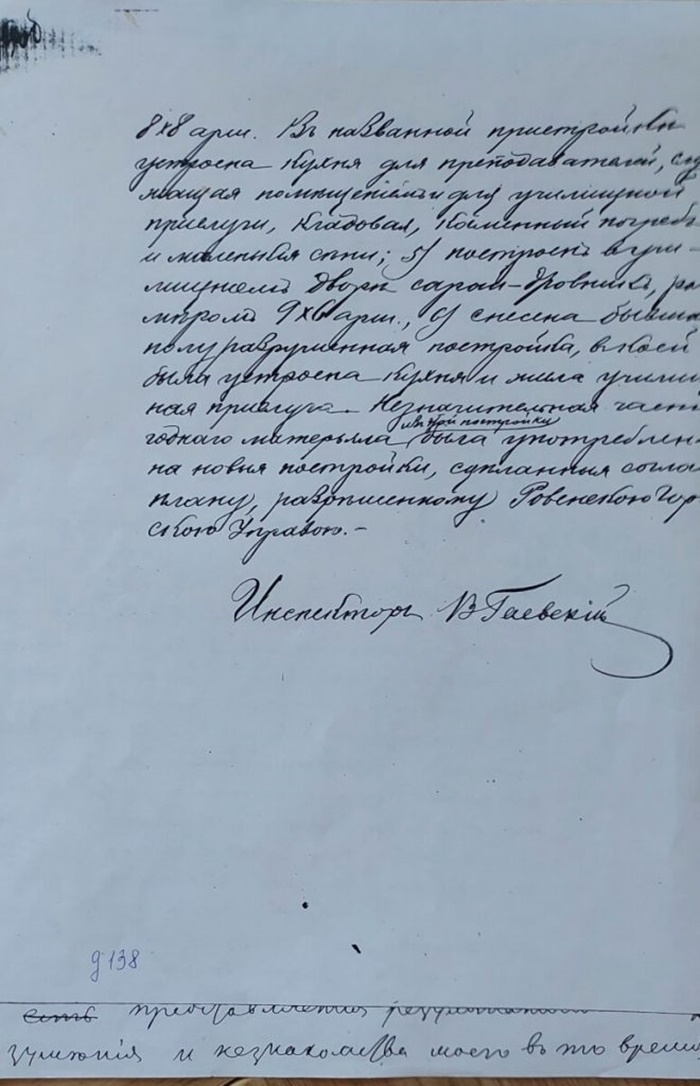 8х8 арш. Въ названной пристройкѣ
устроена кухня для преподавателей, слу
жащая помѣщеніемъ и для училищной
прислуги, кладовая, каменный погребъ
и маленькія сѣни; 5) построенъ въ учи-
лищномъ дворѣ сарай-дровникъ, ра
мѣромъ 9х6 арш., 6) снесена бывшая
полуразрушенная постройка, въ коей
была устроена кухня и жила училищ
ная прислуга. Незначительная часть
изъ этой постройки
годнаго матерьяла была употреблена
на новыя постройки, сдѣланныя соглас
плану, разрѣшенному Ровенскою Город
скою Управою.-
Инспекторъ В Гаевскій
д 138
есть представляется
и незнакомства моего въ то время